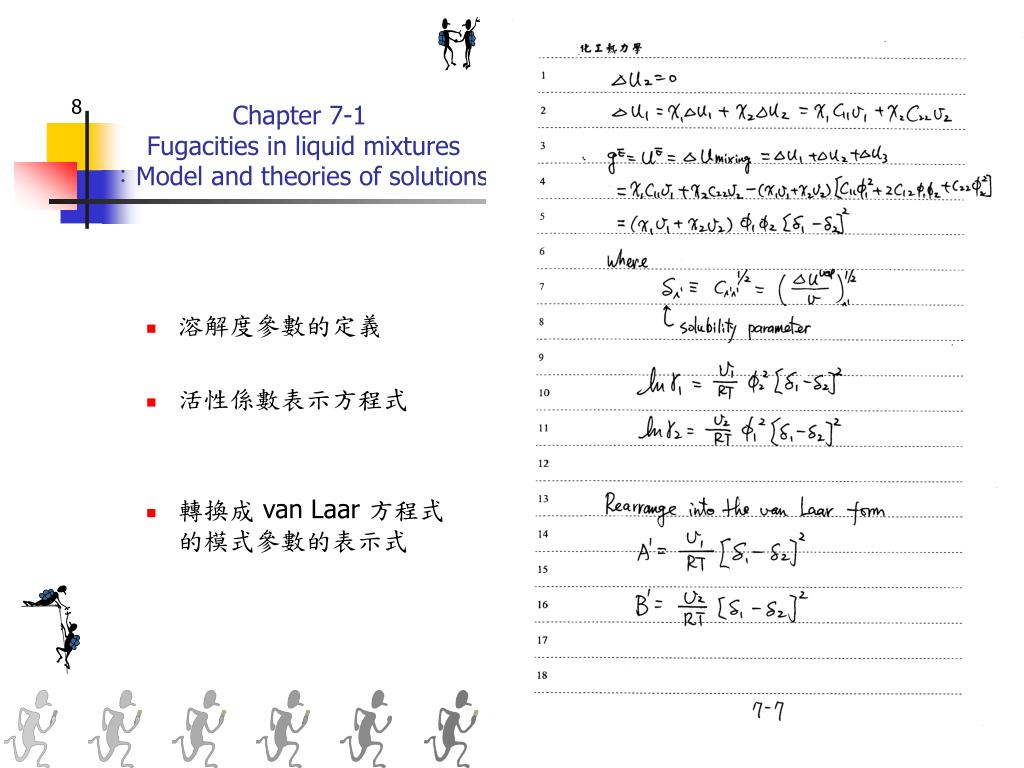 8
Chapter 7-1
Fugacities in liquid mixtures
: Model and theories of solutions
溶解度參數的定義
活性係數表示方程式
轉換成 van Laar 方程式
的模式參數的表示式
化工熱力學
1
ΔU₂=0
2
ΔU₁ = x₁ΔU₁ + x₂ΔU₂ = x₁C₁₁v₁ + x₂C₂₂v₂
3
g^E = U^E = ΔUmixing = ΔU₁+ΔU₂+ΔU₃
4
= x₁C₁₁v₁ + x₂C₂₂v₂ - (x₁v₁+x₂v₂)[C₁₁φ₁²+2C₁₂φ₁φ₂+C₂₂φ₂²]
5
= (x₁v₁ + x₂v₂) φ₁φ₂ [δ₁ - δ₂]²
6
where
7
δᵢ ≡ Cᵢᵢ^1/2 = (ΔU^vap / v)ᵢ^1/2
8
solubility parameter
9
10
ln γ₁ = v₁/RT φ₂² [δ₁-δ₂]²
11
ln γ₂ = v₂/RT φ₁² [δ₁-δ₂]²
12
13
Rearrange into the van Laar form
14
A' = v₁/RT [δ₁ - δ₂]²
15
16
B' = v₂/RT [δ₁ - δ₂]²
17
18
7-7